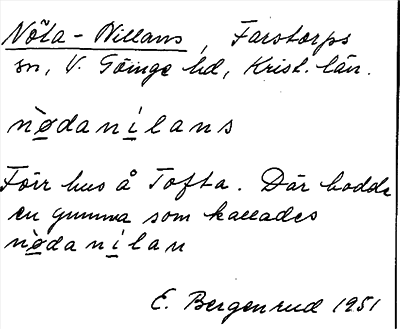 Nöta-Nillans, Farstorps
sn, V. Göinge hd, Krist. län.
nø̀danilans
Förr hus å Tofta. Där bodde
en gumma som kallades
nø̀danilan
E. Bergenrud 1951